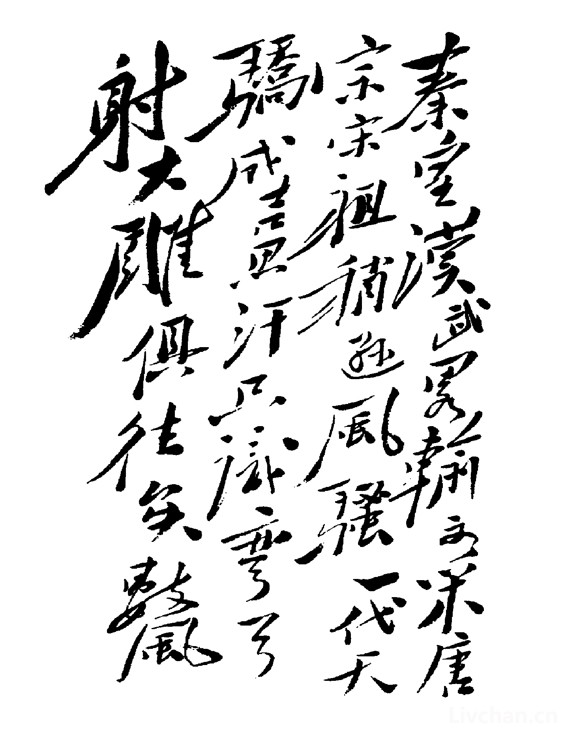 秦皇漢武畧輸文采唐
宗宋祖稍遜風騷一代天
驕成吉思汗只識彎弓
射大雕俱往矣數風
Livchan.cn